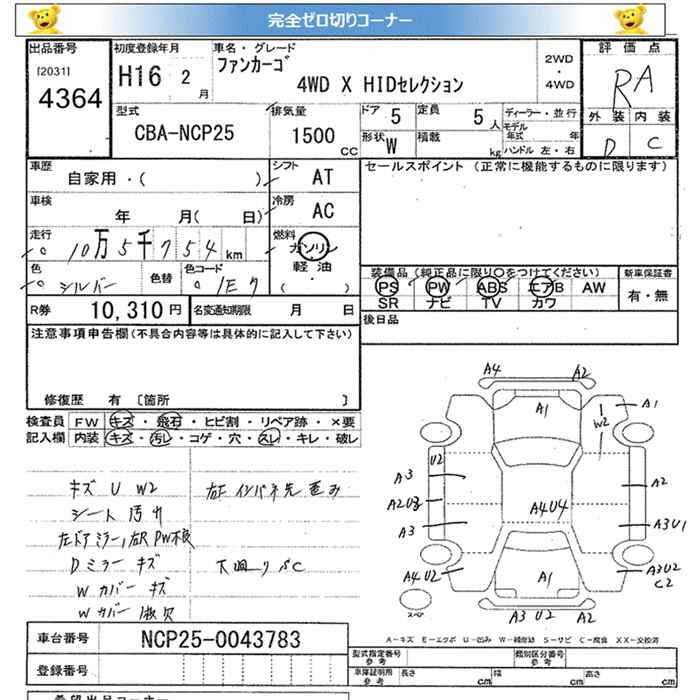 完全ゼロ切りコーナー
出品番号 初度登録年月 車名・グレード 評価点
[2031] 4364 H16 2月 ファンカーゴ 4WD X HIDセレクション 2WD・4WD RA
型式 排気量 ドア 5 定員 5人 ディーラー・並行 外装 内装
CBA-NCP25 1500cc 形状 W 積載 kg モデル年式 年 D C
ハンドル 左・右
車歴 自家用・( ) シフト AT セールスポイント (正常に機能するものに限ります)
車検 年 月( 日) 冷房 AC
走行 10万5千754km 燃料 ガソリン
色 シルバー 色替 色コード 1E7 軽油 ( ・ ) 装備品(純正品に限り○をつけてください) 新車保証書
PS PW ABS エアB AW 有・無
SR ナビ TV カワ
R券 10,310円 名変通知期限 月 日 後日品
注意事項申告欄(不具合内容等は具体的に記入して下さい)
修復歴 有 〔箇所 〕
検査員 FW キズ・飛石・ヒビ割・リペア跡・×要
記入欄 内装 キズ・汚レ・コゲ・穴・スレ・キレ・破レ
キズ U W2 右F インパネ先歪み
シート 汚れ
左ドアミラー,右R PW不良
Dミラー キズ 下廻りパC
Wカバー キズ
Wカバー 欠
A4 A2
A1 A1
W2
U2
A3 A2
A2U3 A4U4
A3 A3U1
A4U2 A1 A3U2
C2
スペア A3 U2 A2
A-キズ E-エクボ U-凹み W-補修跡 S-サビ C-腐食 XX-交換済
車台番号 NCP25-0043783
登録番号
型式指定番号 参考 類別区分番号 参考
車庫証明用 参考 長さ cm 幅 cm 高さ cm
希望出品コーナー